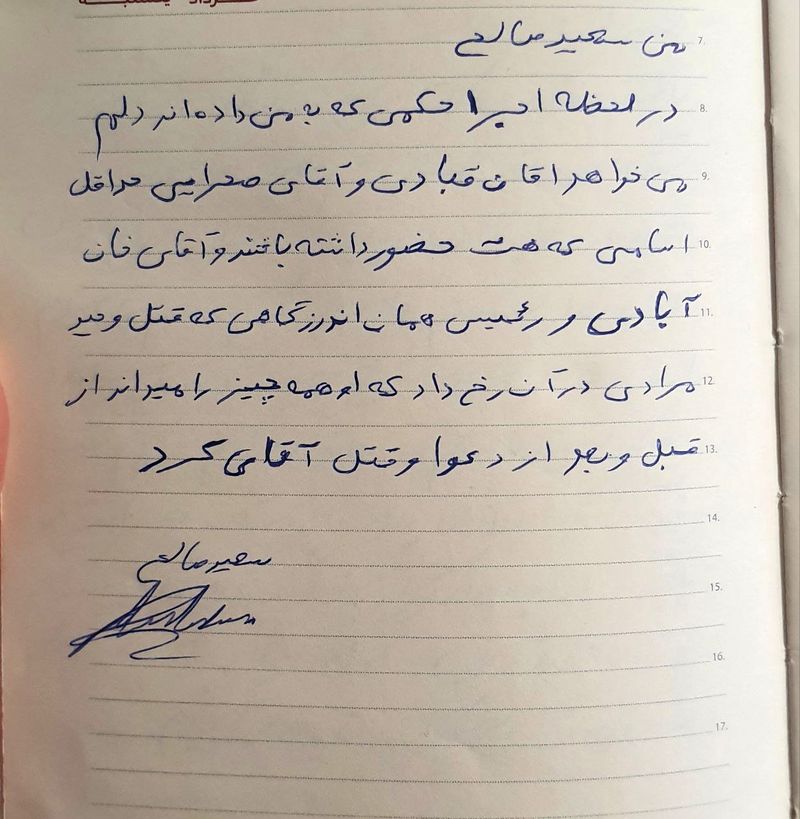 7. من سعید صالح
8. در لحظه اجرا حکمی که به من داده اند دلم
9. می خواهد اقای قبادی و آقای صحرایی حداقل
10. اسامی که هست حضور داشته باشند و آقای خان
11. آبادی و رئیس همان اندرزگاهی که قتل وحید
12. مرادی در آن رخ داد که او همه چیز را میداند از
13. قبل و بعد از دعوا و قتل آقای کرد
14.
سعید صالح
15.
16.
17.